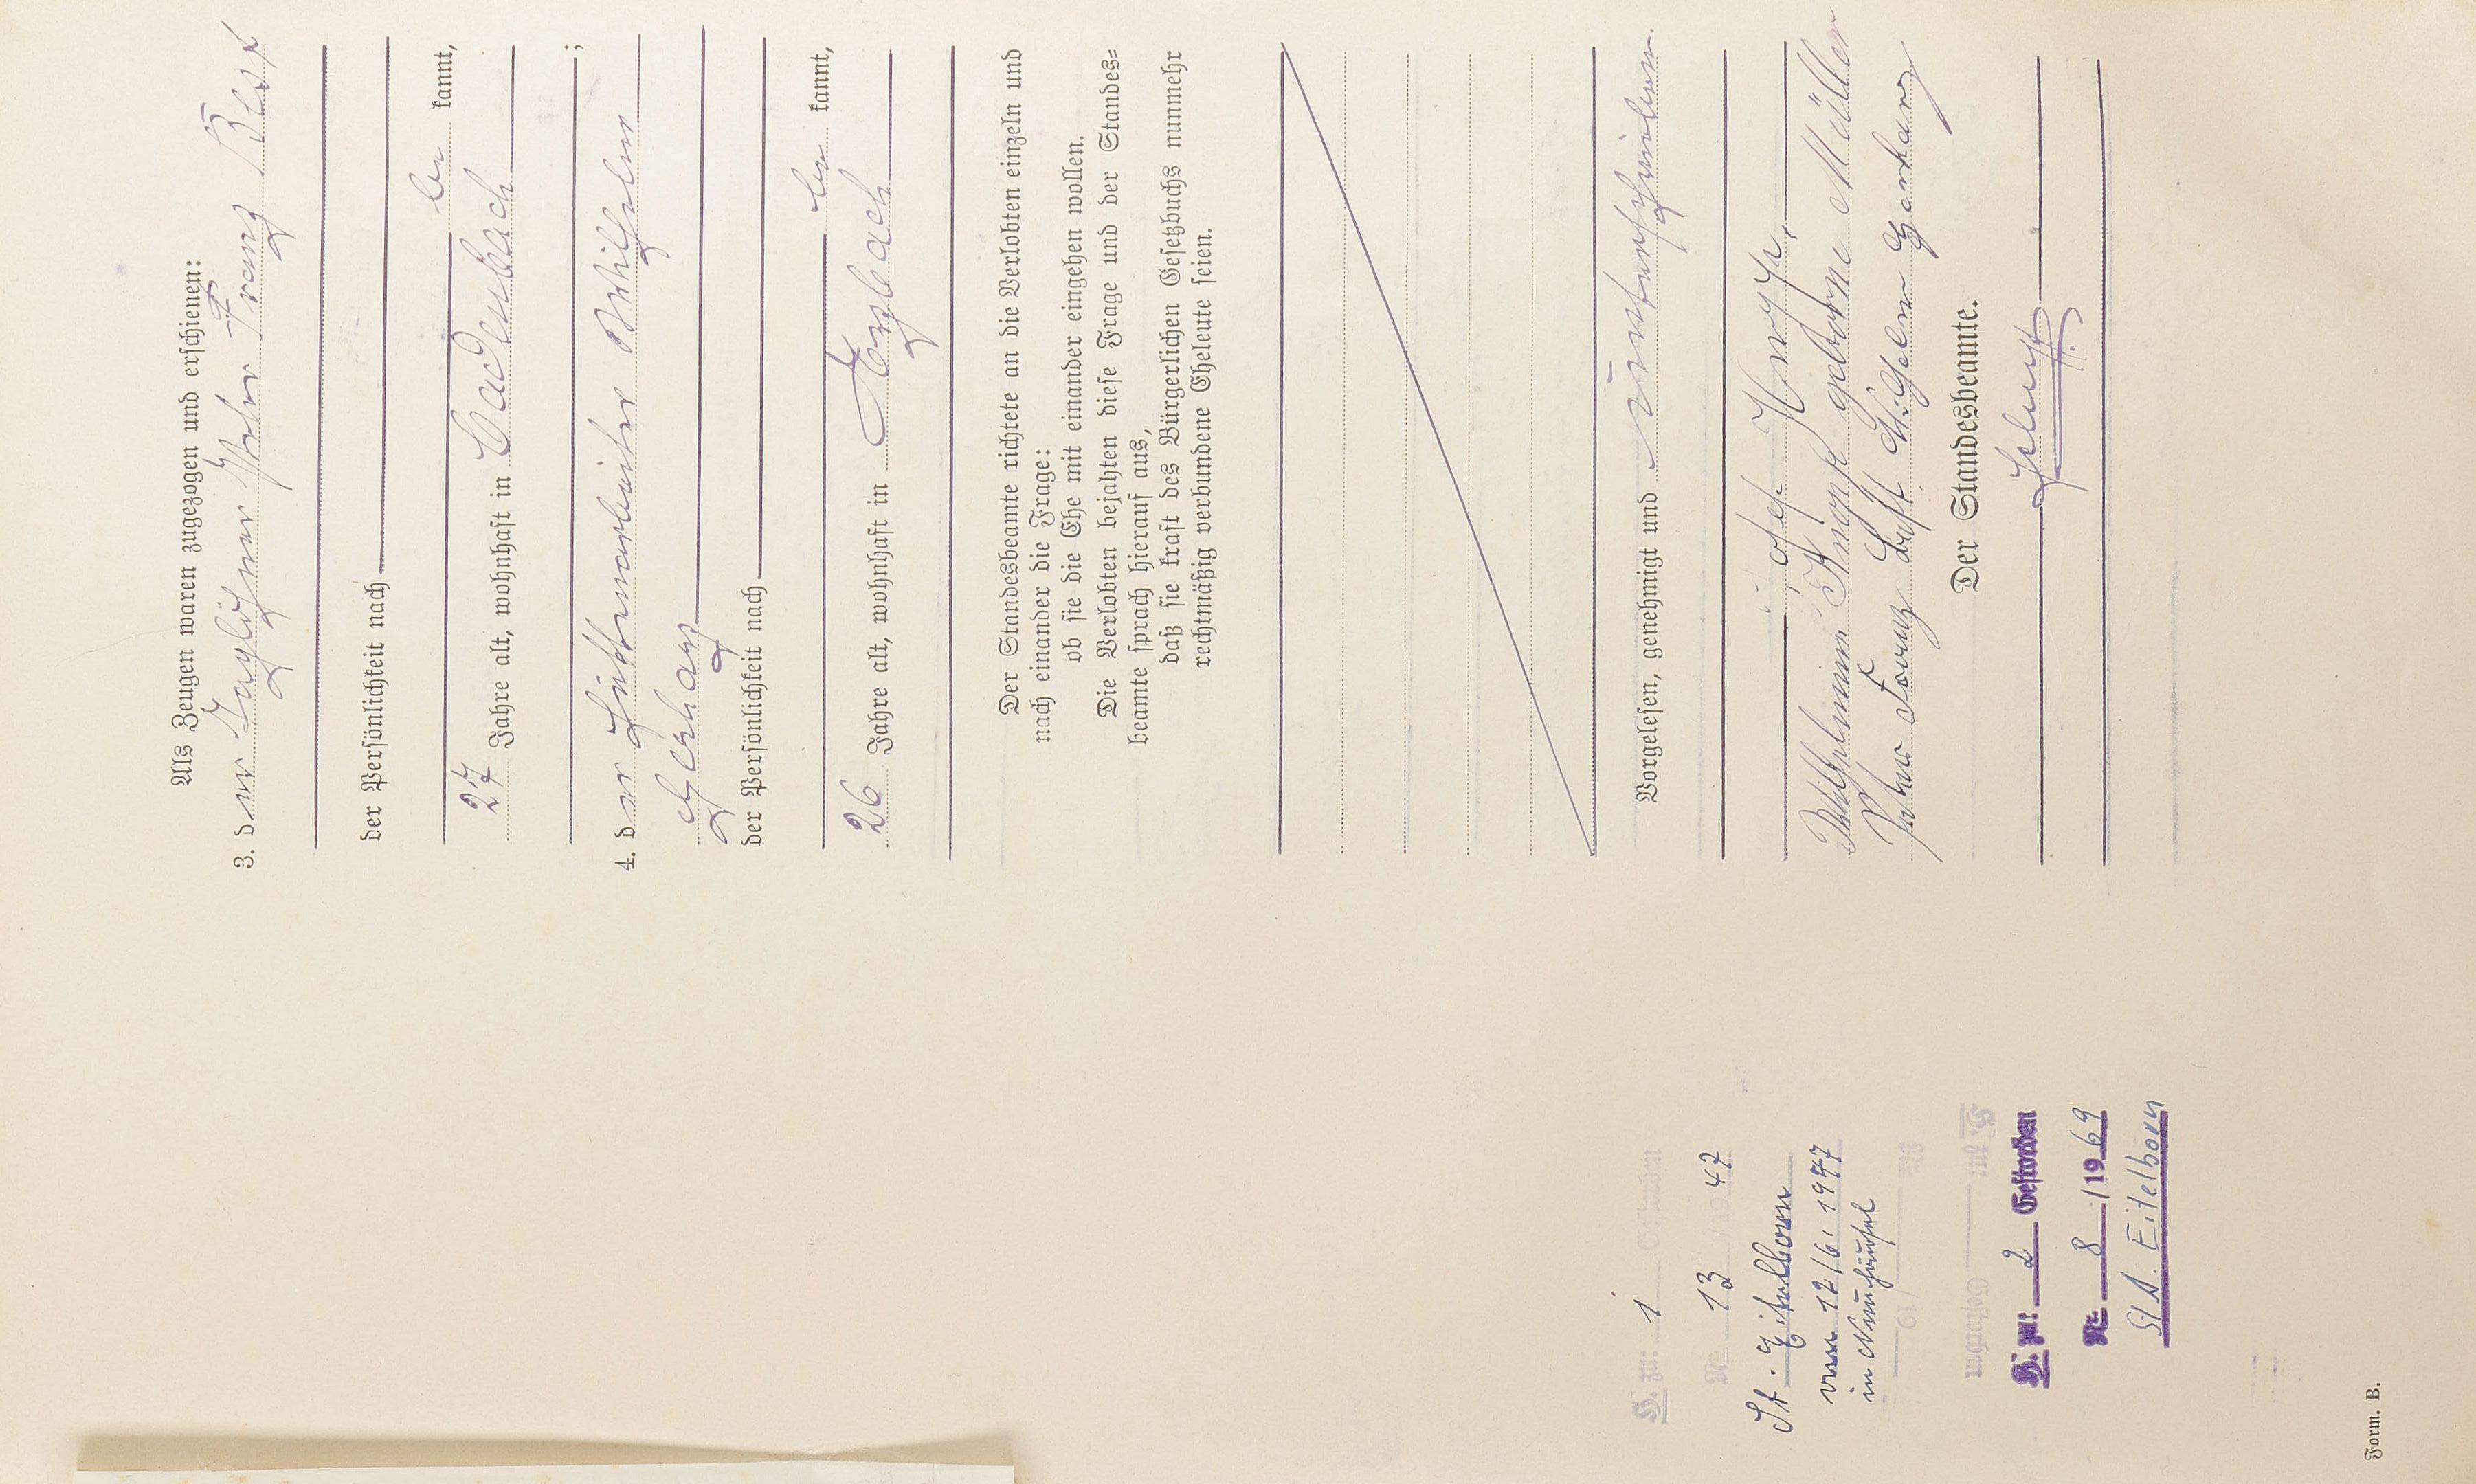 Als Zeugen waren zugezogen und erschienen:
3. der Taglöhner Peter Franz
der Persönlichkeit nach
be kannt,
27 Jahre alt, wohnhaft in Cadenbach
;
4. der Hüttenarbeiter Wilhelm
Gerharz
der Persönlichkeit nach
be kannt,
26 Jahre alt, wohnhaft in Arzbach
Der Standesbeamte richtete an die Verlobten einzeln und
nach einander die Frage:
ob sie die Ehe mit einander eingehen wollen.
Die Verlobten bejahten diese Frage und der Standes=
beamte sprach hierauf aus,
daß sie kraft des Bürgerlichen Gesetzbuchs nunmehr
rechtmäßig verbundene Eheleute seien.
Vorgelesen, genehmigt und unterschrieben.
Josef Knopp,
Wilhelmine Knopp geborne Müller
Peter Franz Wilhelm Gerharz
Der Standesbeamte.
H. zu: 1 Gestorben
Nr. 13 /19 47
St. Eitelborn
vom 12/6. 1947
in Neuhäusel
H. zu: 2 Gestorben
Nr. 8 /1969
StA. Eitelborn
Form. B.